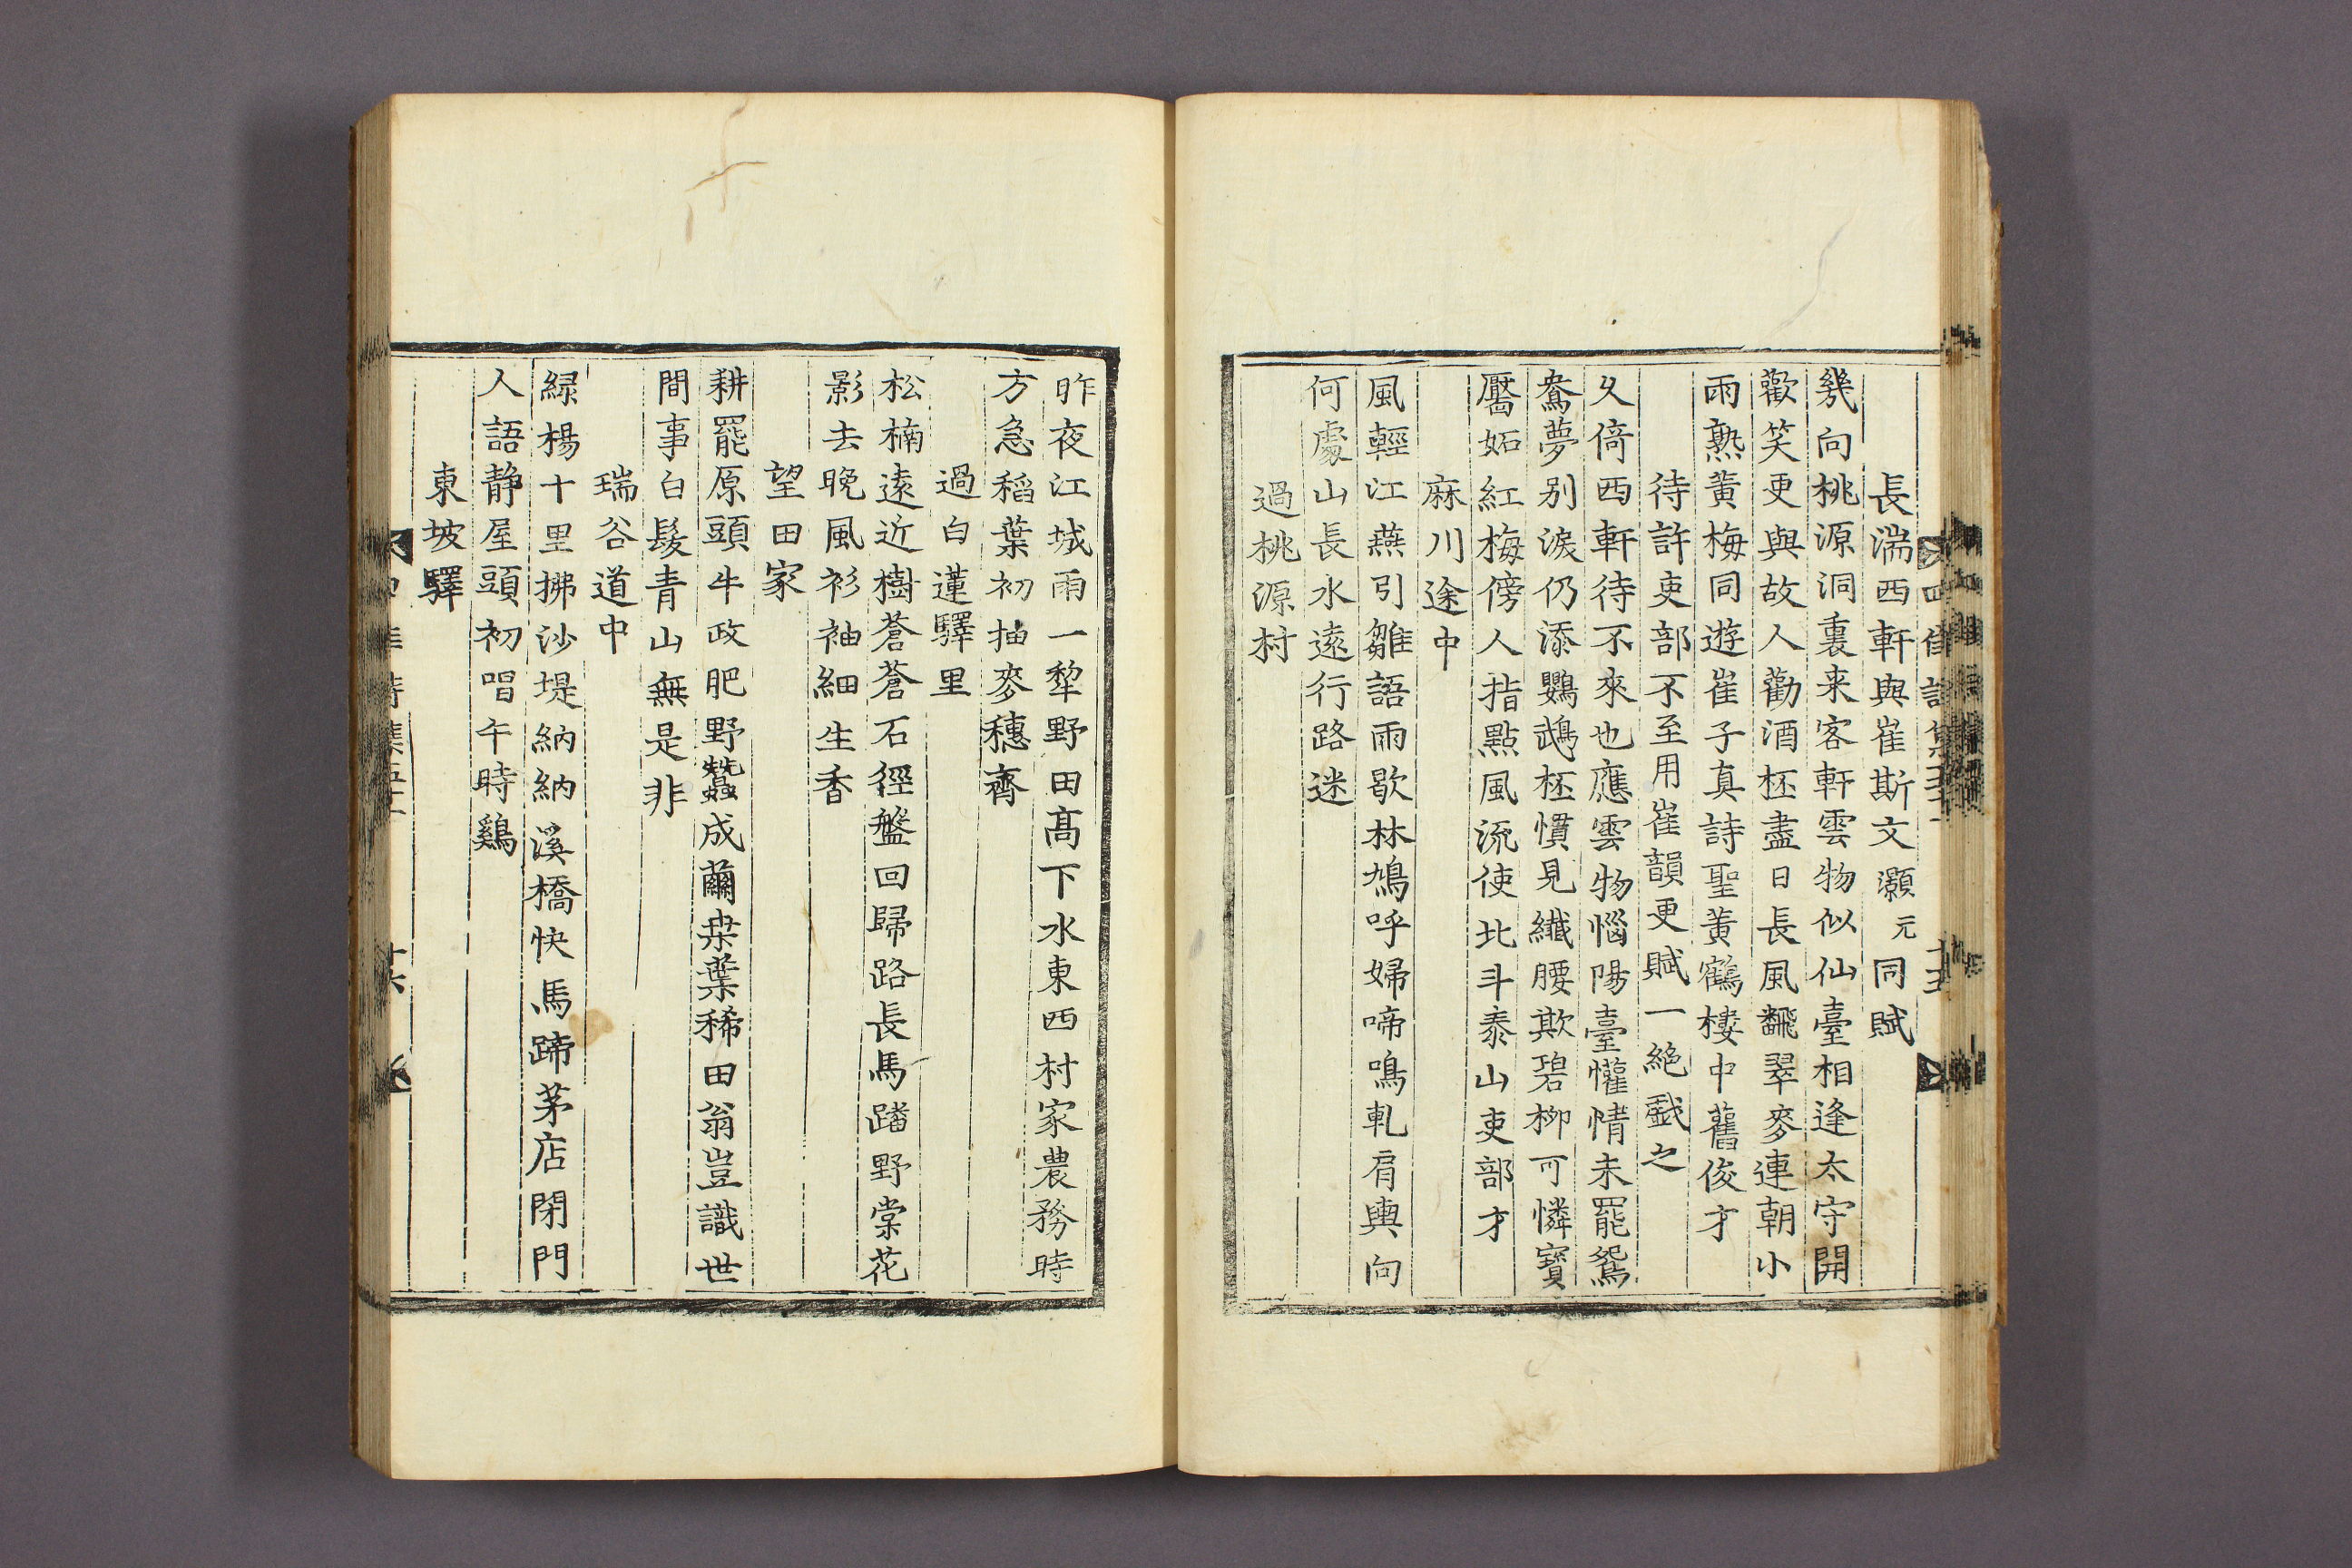 長湍西軒與崔斯文灝元同賦
幾向桃源洞裏来客軒雲物似仙臺相逢太守開
歡笑更與故人勸酒柸盡日長風飜翠麥連朝小
雨熟黃梅同遊崔子真詩聖黃鶴樓中舊俊才
待許吏部不至用崔韻更賦一絶戱之
久倚西軒待不來也應雲物惱陽臺懽情未罷鴛
鴦夢別淚仍添鸚鵡柸慣見纖腰欺碧柳可憐寶
靨妬紅梅傍人指點風流使北斗泰山吏部才
麻川途中
風輕江燕引雛語雨歇林鳩呼婦啼鳴軋肩輿向
何處山長水遠行路迷
過桃源村
昨夜江城雨一犂野田髙下水東西村家農務時
方急稻葉初抽麥穗齊
過白蓮驛里
松楠遠近樹蒼蒼石徑盤回歸路長馬蹯野棠花
影去晚風衫袖細生香
望田家
耕罷原頭牛政肥野蠶成繭桒葉稀田翁豈識世
間事白髮青山無是非
瑞谷道中
緑楊十里拂沙堤納納溪橋快馬蹄茅店閉門
人語静屋頭初唱午時鷄
東坡驛